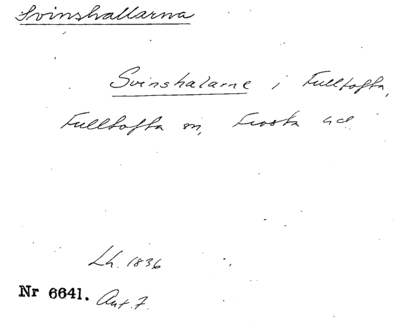 Svinshallarna
Svinshalarne i Fulltofta,
Fulltofta sn, Frosta hd
Lh. 1836
Nr 6641. Ant. 7.